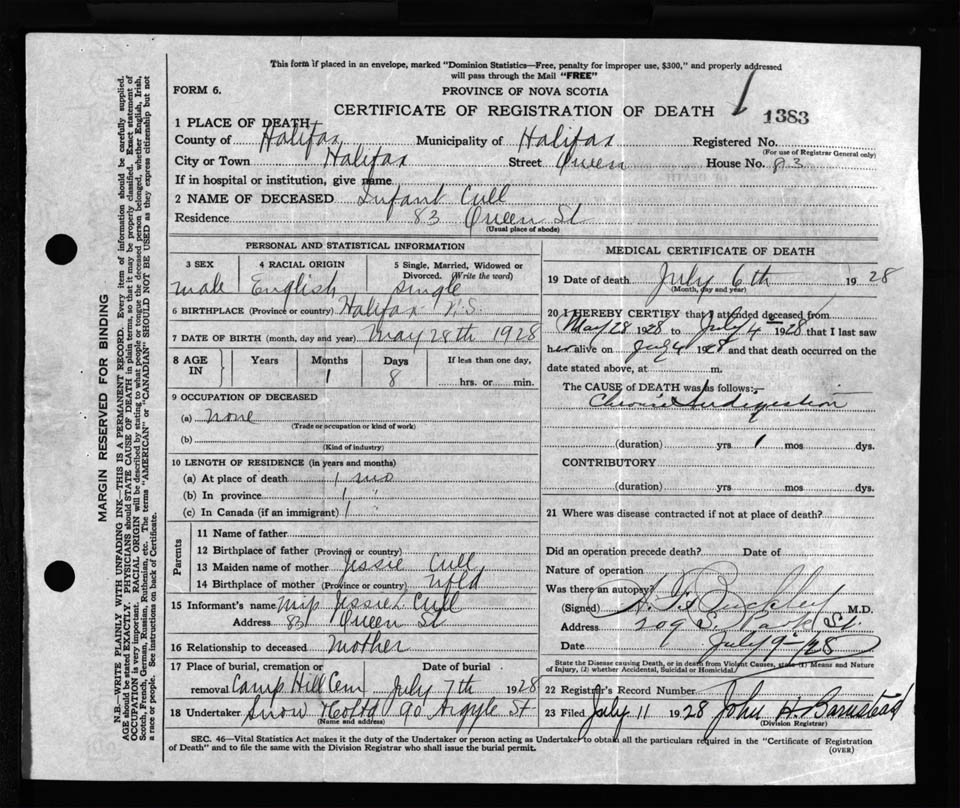 This form if placed in an envelope, marked "Dominion Statistics—Free, penalty for improper use, $300," and properly addressed
will pass through the Mail "FREE"
FORM 6.
PROVINCE OF NOVA SCOTIA
CERTIFICATE OF REGISTRATION OF DEATH
1383
1 PLACE OF DEATH
County of Halifax Municipality of Halifax Registered No.
(For use of Registrar General only)
City or Town Halifax Street Queen House No. 83
If in hospital or institution, give name
2 NAME OF DECEASED Infant Cull
Residence 83 Queen St
(Usual place of abode)
PERSONAL AND STATISTICAL INFORMATION
3 SEX 4 RACIAL ORIGIN 5 Single, Married, Widowed or
Divorced. (Write the word)
male English single
6 BIRTHPLACE (Province or country) Halifax N.S.
7 DATE OF BIRTH (month, day and year) May 28th 1928
8 AGE IN Years Months Days If less than one day,
1 8 hrs. or min.
9 OCCUPATION OF DECEASED
(a) none
(Trade or occupation or kind of work)
(b)
(Kind of industry)
10 LENGTH OF RESIDENCE (in years and months)
(a) At place of death 1 mo
(b) In province 1 "
(c) In Canada (if an immigrant) 1
Parents
11 Name of father
12 Birthplace of father (Province or country)
13 Maiden name of mother Jessie Cull
14 Birthplace of mother (Province or country) Nfld
15 Informant's name Miss Jessie Cull
Address 83 Queen St
16 Relationship to deceased mother
17 Place of burial, cremation or Date of burial
removal Camp Hill Cem July 7th 1928
18 Undertaker Snow & Co Ltd 90 Argyle St
(Name and address)
MEDICAL CERTIFICATE OF DEATH
19 Date of death July 6th 1928
(Month, day and year)
20 I HEREBY CERTIFY that I attended deceased from
May 28 1928 to July 4th 1928 that I last saw
h alive on July 4 1928 and that death occurred on the
date stated above, at m.
The CAUSE of DEATH was as follows:—
Chronic Indigestion
(duration) yrs 1 mos dys.
CONTRIBUTORY
(duration) yrs. mos. dys.
21 Where was disease contracted if not at place of death?
Did an operation precede death? Date of
Nature of operation
Was there an autopsy?
(Signed) Buckley M.D.
Address 209 S. Park St.
Date July 9th 28
State the Disease causing Death, or in death from Violent Causes, state (1) Means and Nature
of Injury, (2) whether Accidental, Suicidal, or Homicidal.
22 Registrar's Record Number
23 Filed July 11 1928 John H. Barnstead
(Division Registrar)
SEC. 46—Vital Statistics Act makes it the duty of the Undertaker or person acting as Undertaker to obtain all the particulars required in the "Certificate of Registration
of Death" and to file the same with the Division Registrar who shall issue the burial permit.
(OVER)
MARGIN RESERVED FOR BINDING
N.B.—WRITE PLAINLY WITH UNFADING INK—THIS IS A PERMANENT RECORD. Every item of information should be carefully supplied.
AGE should be stated EXACTLY. PHYSICIANS should STATE CAUSE OF DEATH in plain terms, so that it may be properly classified. Exact statement of
OCCUPATION is very important. RACIAL ORIGIN will be described by stating to what people or tongue the deceased person belonged, whether English, Irish,
Scotch, French, German, Russian, Ruthenian, etc. The terms "AMERICAN" or "CANADIAN" SHOULD NOT BE USED as they express citizenship but not
a race or people. See instructions on back of Certificate.